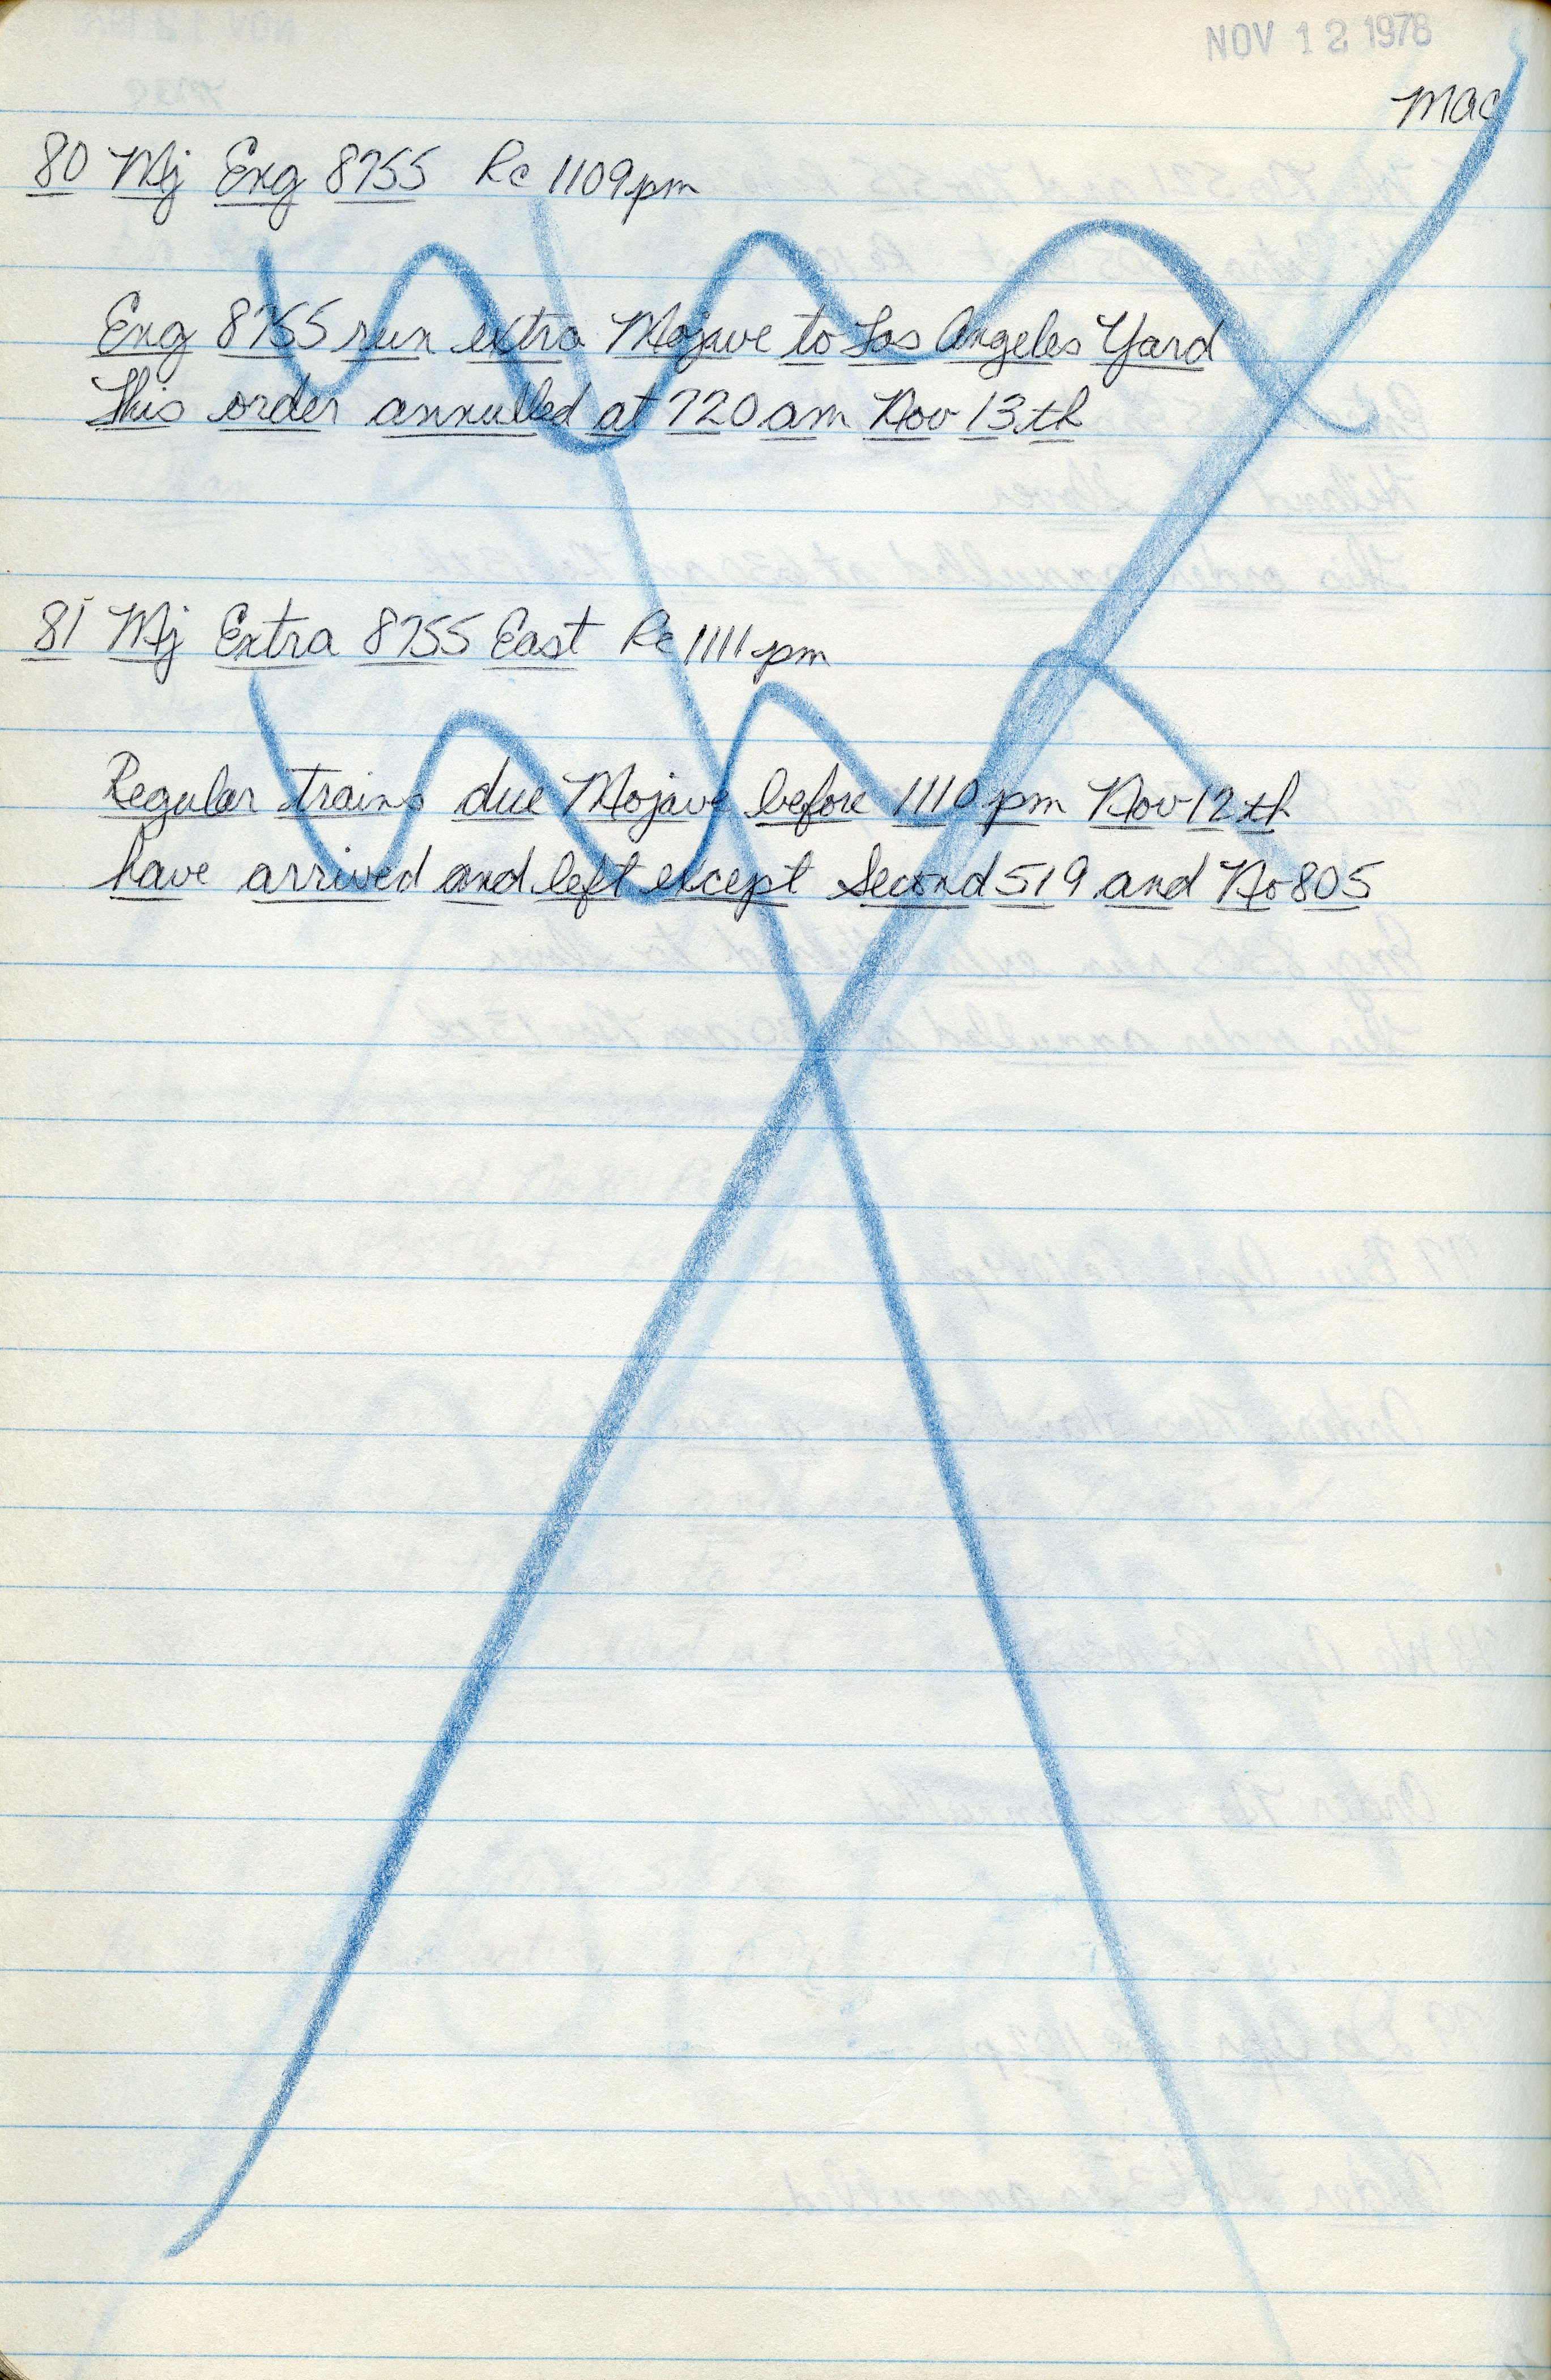 NOV 12 1978
mac
80 Mj Eng 8755 Rc 1109pm
Eng 8755 run extra Mojave to Los Angeles Yard
This order annulled at 720 am Nov 13th
81 Mj Extra 8755 East Rc 1111 pm
Regular trains due Mojave before 1110 pm Nov 12th
have arrived and left except Second 519 and No 805